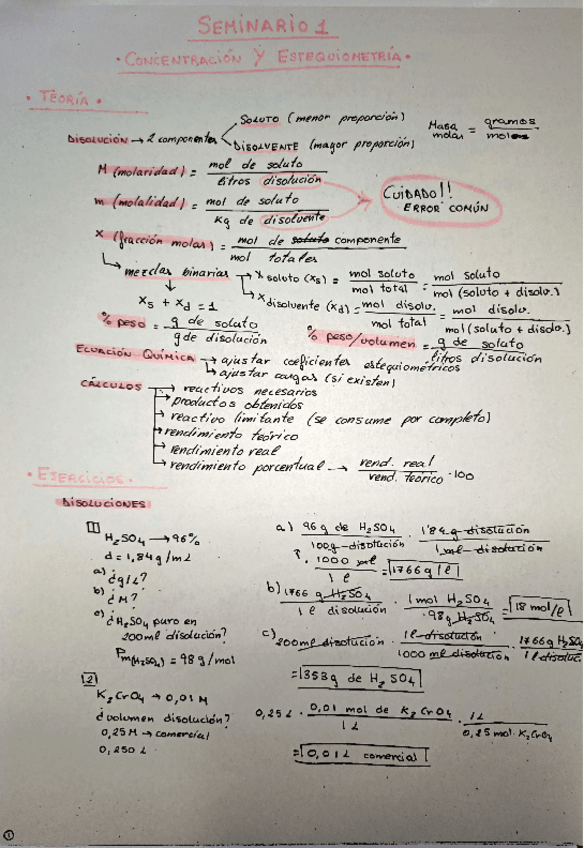 SEMINARIO 1
· CONCENTRACIÓN Y ESTEQUIOMETRÍA ·
· TEORÍA ·
DISOLUCIÓN → 2 componentes
SOLUTO (menor proporción)
DISVOLVENTE (mayor proporción)
Masa molar = gramos / moles
M (molaridad) = mol de soluto / litros disolución
m (molalidad) = mol de soluto / Kg de disolvente
CUIDADO!!
ERROR COMÚN
X (fracción molar) = mol de soluto componente / mol totales
mezclas binarias → X soluto (Xs) = mol soluto / mol total = mol soluto / mol (soluto + disolv.)
Xs + Xd = 1
X disolvente (Xd) = mol disolv. / mol total = mol disolv. / mol (soluto + disolv.)
% peso = g de soluto / g de disolución
% peso/volumen = g de soluto / litros disolución
ECUACIÓN QUÍMICA → ajustar coeficientes estequiométricos
→ ajustar cargas (si existen)
CÁLCULOS → reactivos necesarios
→ productos obtenidos
→ reactivo limitante (se consume por completo)
→ rendimiento teórico
→ rendimiento real
→ rendimiento porcentual → rend. real / rend. teórico · 100
· EJERCICIOS ·
DISOLUCIONES
1
H2SO4 → 96%
d = 1,84 g/mL
a) ¿g/L?
b) ¿M?
c) ¿H2SO4 puro en
200ml disolución?
Pm(H2SO4) = 98 g/mol
a) 96 g de H2SO4 / 100g disolución · 1'84 g disolución / 1 ml disolución
· 1000 ml / 1 l = 1766 g/l
b) 1766 g H2SO4 / 1 l disolución · 1 mol H2SO4 / 98 g H2SO4 = 18 mol/l
c) 200ml disolución · 1 l disolución / 1000 ml disolución · 1766 g H2SO4 / 1 l disoluc.
= 353 g de H2SO4
2
K2CrO4 → 0,01 M
¿volumen disolución?
0,25 M → comercial
0,250 L
0,25 L · 0,01 mol de K2CrO4 / 1 L · 1 L / 0,25 mol · K2CrO4
= 0,01 L comercial
1